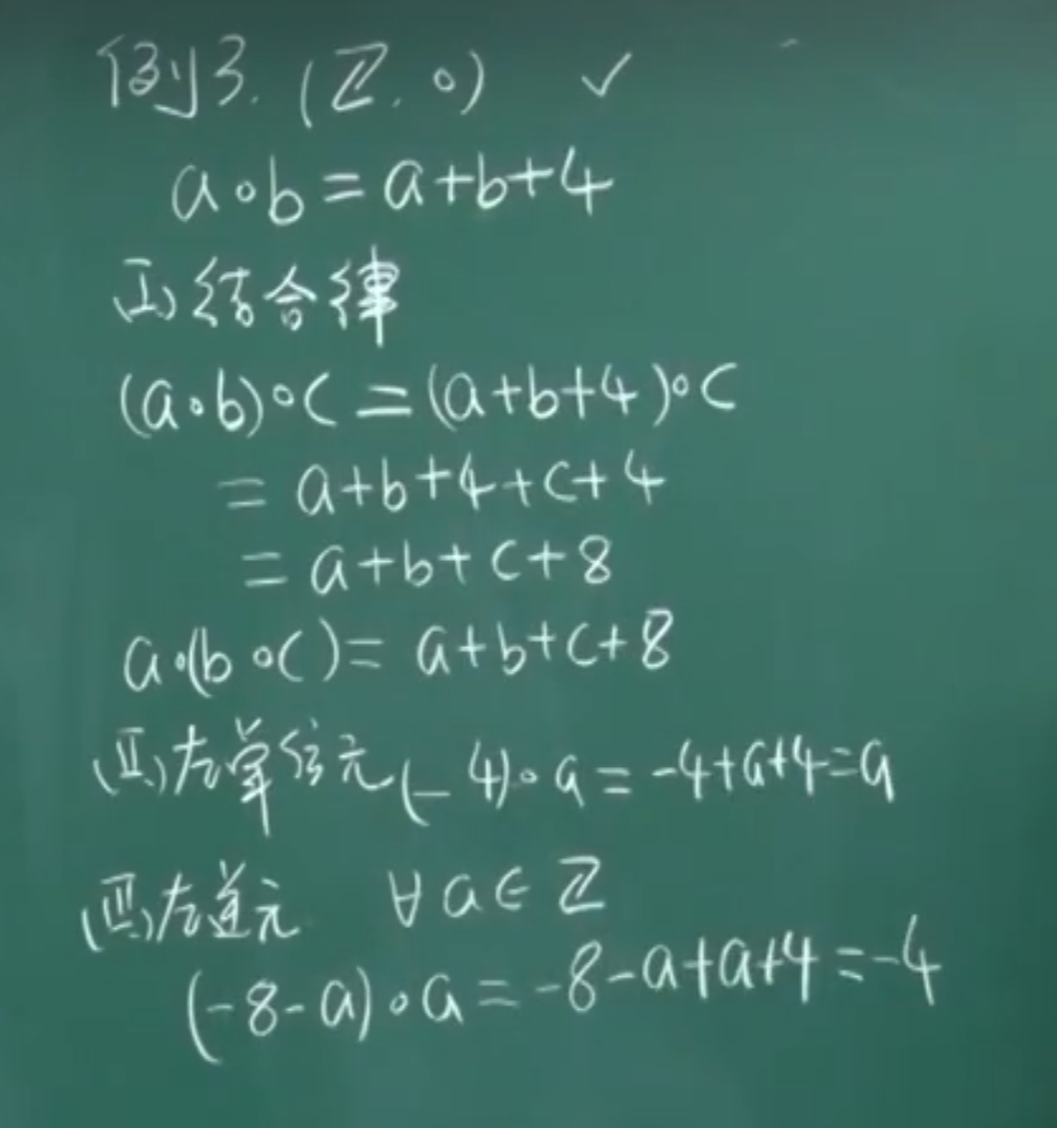 例3. (ℤ, ∘) ✓
a∘b=a+b+4
(I)结合律
(a∘b)∘c=(a+b+4)∘c
=a+b+4+c+4
=a+b+c+8
a∘(b∘c)=a+b+c+8
(II)左单位元(-4)∘a=-4+a+4=a
(III)左逆元 ∀a∈ℤ
(-8-a)∘a=-8-a+a+4=-4